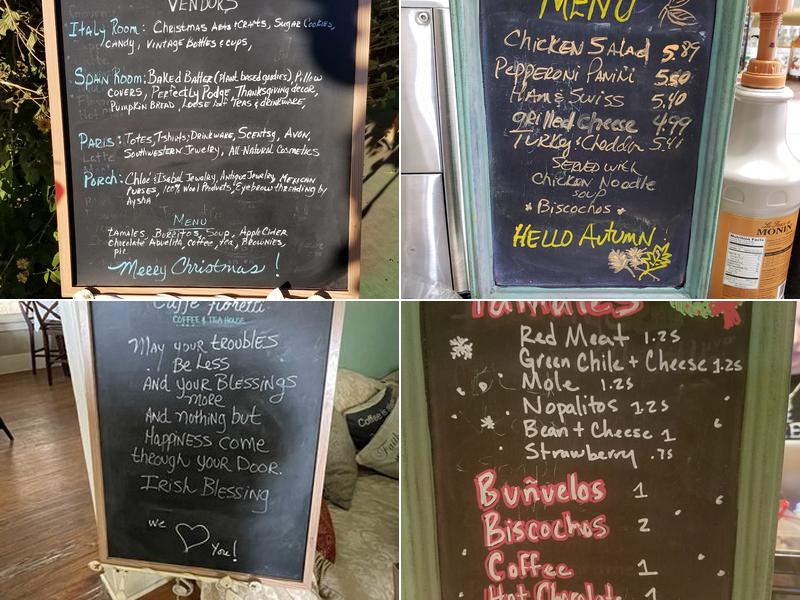 VENDORS
Italy Room: Christmas Arts & Crafts, Sugar Cookies,
Candy, Vintage Bottles & Cups,
Spain Room: Baked Batter (Plant based goodies), Pillow
covers, Perfectly Podge, Thanksgiving decor,
Pumpkin Bread, Loose leaf Teas & drinkware,
Paris: Totes, Tshirts, Drinkware, Scentsy, Avon,
Southwestern Jewelry, All Natural Cosmetics
Porch: Chloe & Isabel Jewelry, Antique Jewelry, Mexican
Purses, 100% Wool Products, Eyebrow threading by
Aysha
Menu
tamales, Burritos, Soup, Apple Cider
chocolate Abuelita, coffee, tea, Brownies,
pie
Merry Christmas!
MENU
Chicken Salad 5.89
Pepperoni Panini 5.50
Ham & Swiss 5.40
grilled Cheese 4.99
Turkey & Cheddar 5.41
Served with
Chicken Noodle
soup
* Biscochos *
HELLO AUTUMN!
MONIN
Nutrition Facts
Caffe Fioretti
COFFEE & TEA HOUSE
May your troubles
Be Less
And your Blessings
more
And nothing but
Happiness come
through your Door.
Irish Blessing
we
You!
Coffee is
Faith
Tamales
Red Meat 1.25
Green Chile + Cheese 1.25
Mole 1.25
Nopalitos 1.25
Bean + Cheese 1
Strawberry .75
Buñuelos 1
Biscochos 2
Coffee 1
Hot Chocolate 1